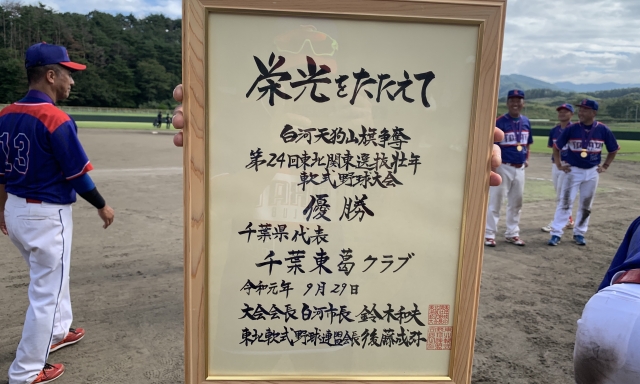 栄光をたたえて
白河天狗山旗争奪
第24回東北関東選抜壮年
軟式野球大会
優勝
千葉県代表
千葉東葛クラブ
令和元年 9月29日
大会会長 白河市長 鈴木和夫
東北軟式野球連盟会長 後藤成弥
13